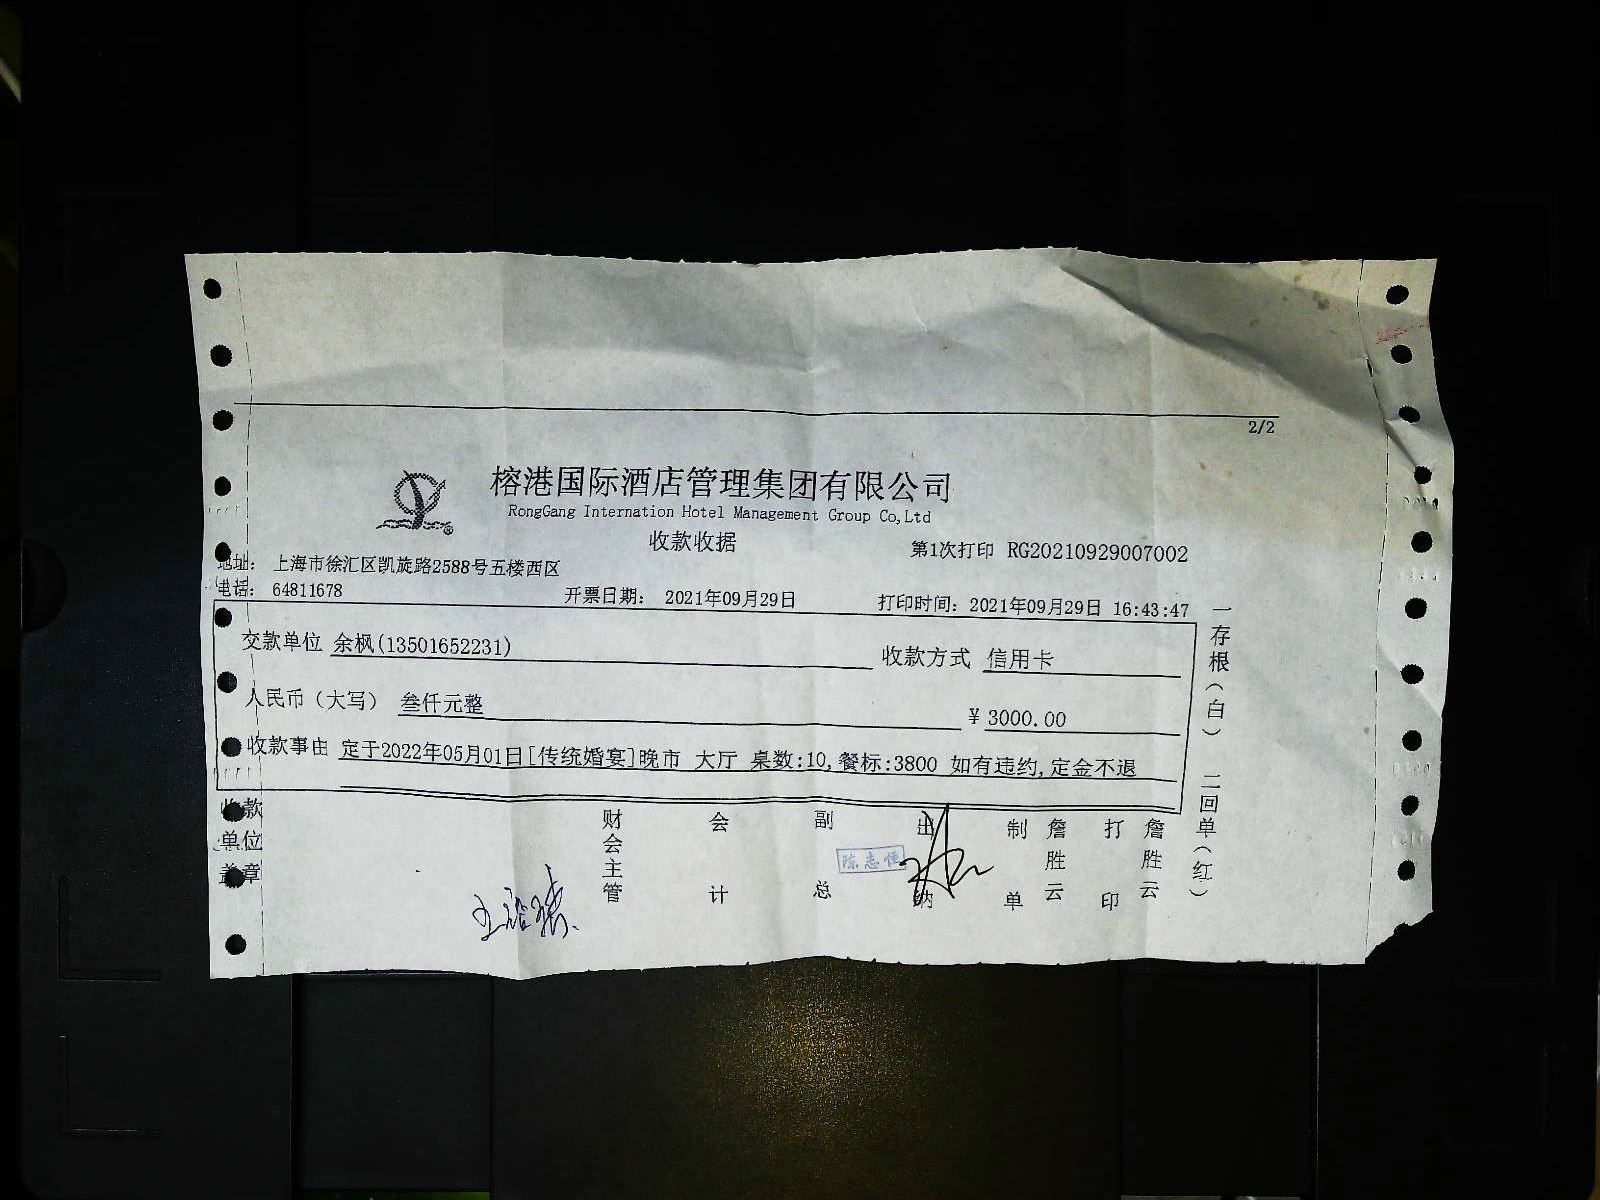 2/2
榕港国际酒店管理集团有限公司
RongGang Internation Hotel Management Group Co,Ltd
收款收据
第1次打印 RG20210929007002
地址： 上海市徐汇区凯旋路2588号五楼西区
电话： 64811678
开票日期： 2021年09月29日
打印时间：2021年09月29日 16:43:47
交款单位 余枫(13501652231)
收款方式 信用卡
人民币（大写） 叁仟元整
¥ 3000.00
收款事由 定于2022年05月01日[传统婚宴]晚市 大厅 桌数:10,餐标:3800 如有违约,定金不退
收款单位盖章
财会主管
会计
副总
出纳
陈志恒
制单
詹胜云
打印
詹胜云
一存根（白） 二回单（红）